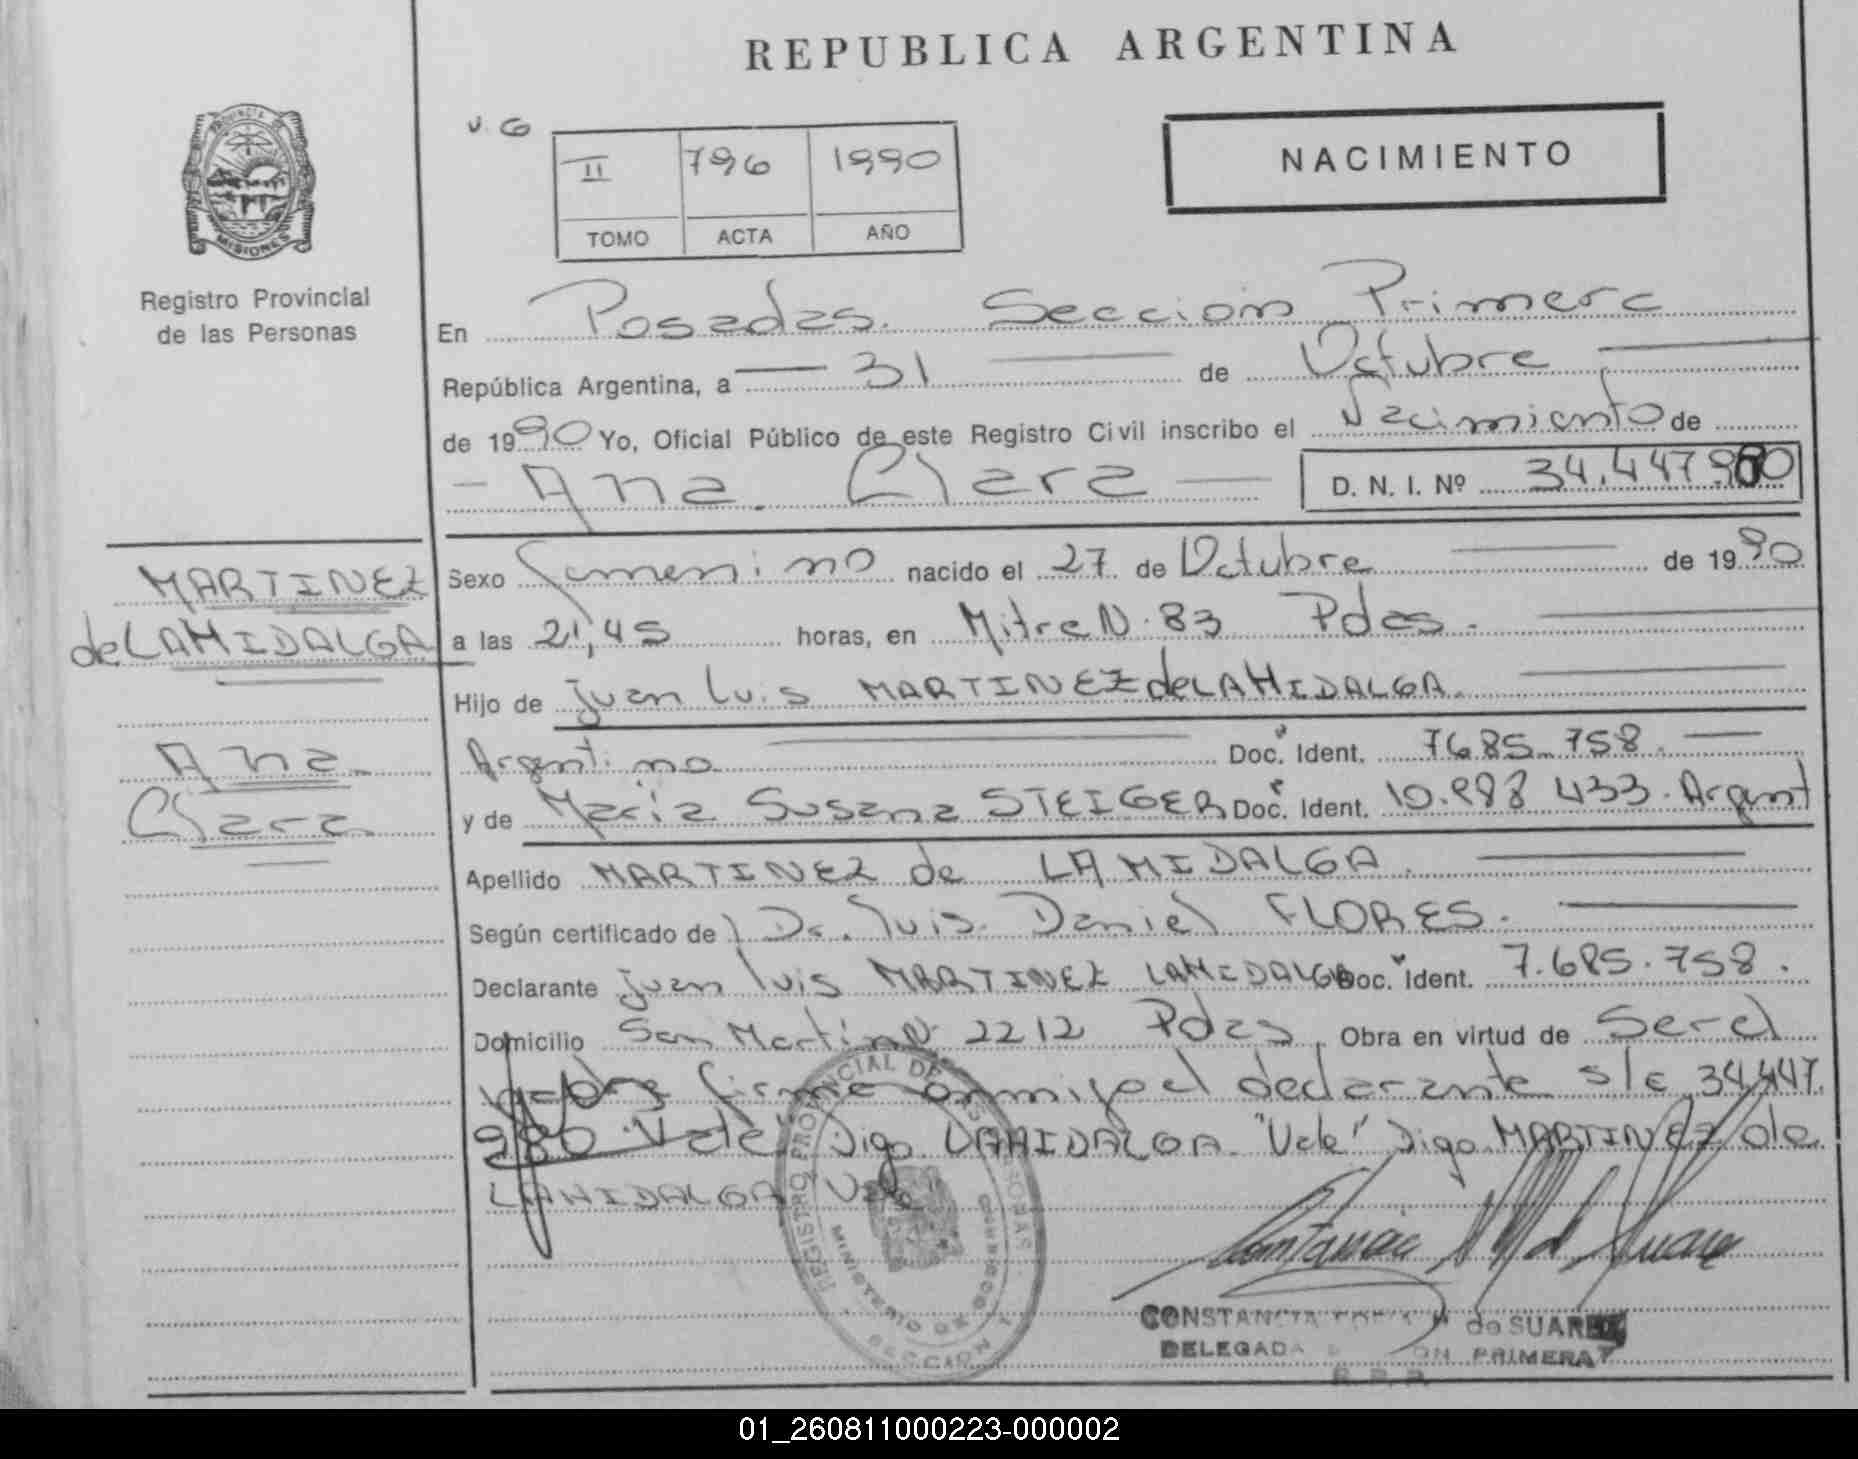 REPUBLICA ARGENTINA
PROVINCIA DE
MISIONES
Registro Provincial
de las Personas
v. G
II 796 1990
TOMO ACTA AÑO
NACIMIENTO
En Posadas. Sección Primera
República Argentina, a — 31 — de Octubre —
de 1990 Yo, Oficial Público de este Registro Civil inscribo el Nacimiento de
— Ana Clara — D. N. I. Nº 34.447.980
MARTINEZ
de LAHIDALGA
Ana
Clara
Sexo femenino nacido el 27 de Octubre — de 1990
a las 21,45 horas, en Mitre N. 83 Pdas. —
Hijo de Juan Luis MARTINEZ de LAHIDALGA. —
Argentino — Doc. Ident. 7685.758. —
y de María Susana STEIGER Doc. Ident. 10.988 433. Argent
Apellido MARTINEZ de LAHIDALGA. —
Según certificado de Dr. Luis Daniel FLORES. —
Declarante Juan Luis MARTINEZ LAHIDALGA Doc. Ident. 7.685.758.
Domicilio San Martín N. 2212 Pdas. Obra en virtud de Ser el
padre firma conmigo el declarante s/e 34.447.
980 "Vale" Digo LAHIDALGA "Vale" Digo MARTINEZ de
LAHIDALGA Vale
REGISTRO PROVINCIAL DE LAS PERSONAS
MINISTERIO DE GOBIERNO
SECCION 1
CONSTANCIA de SUAREZ
DELEGADA PRIMERA
R. P. P.
01_260811000223-000002